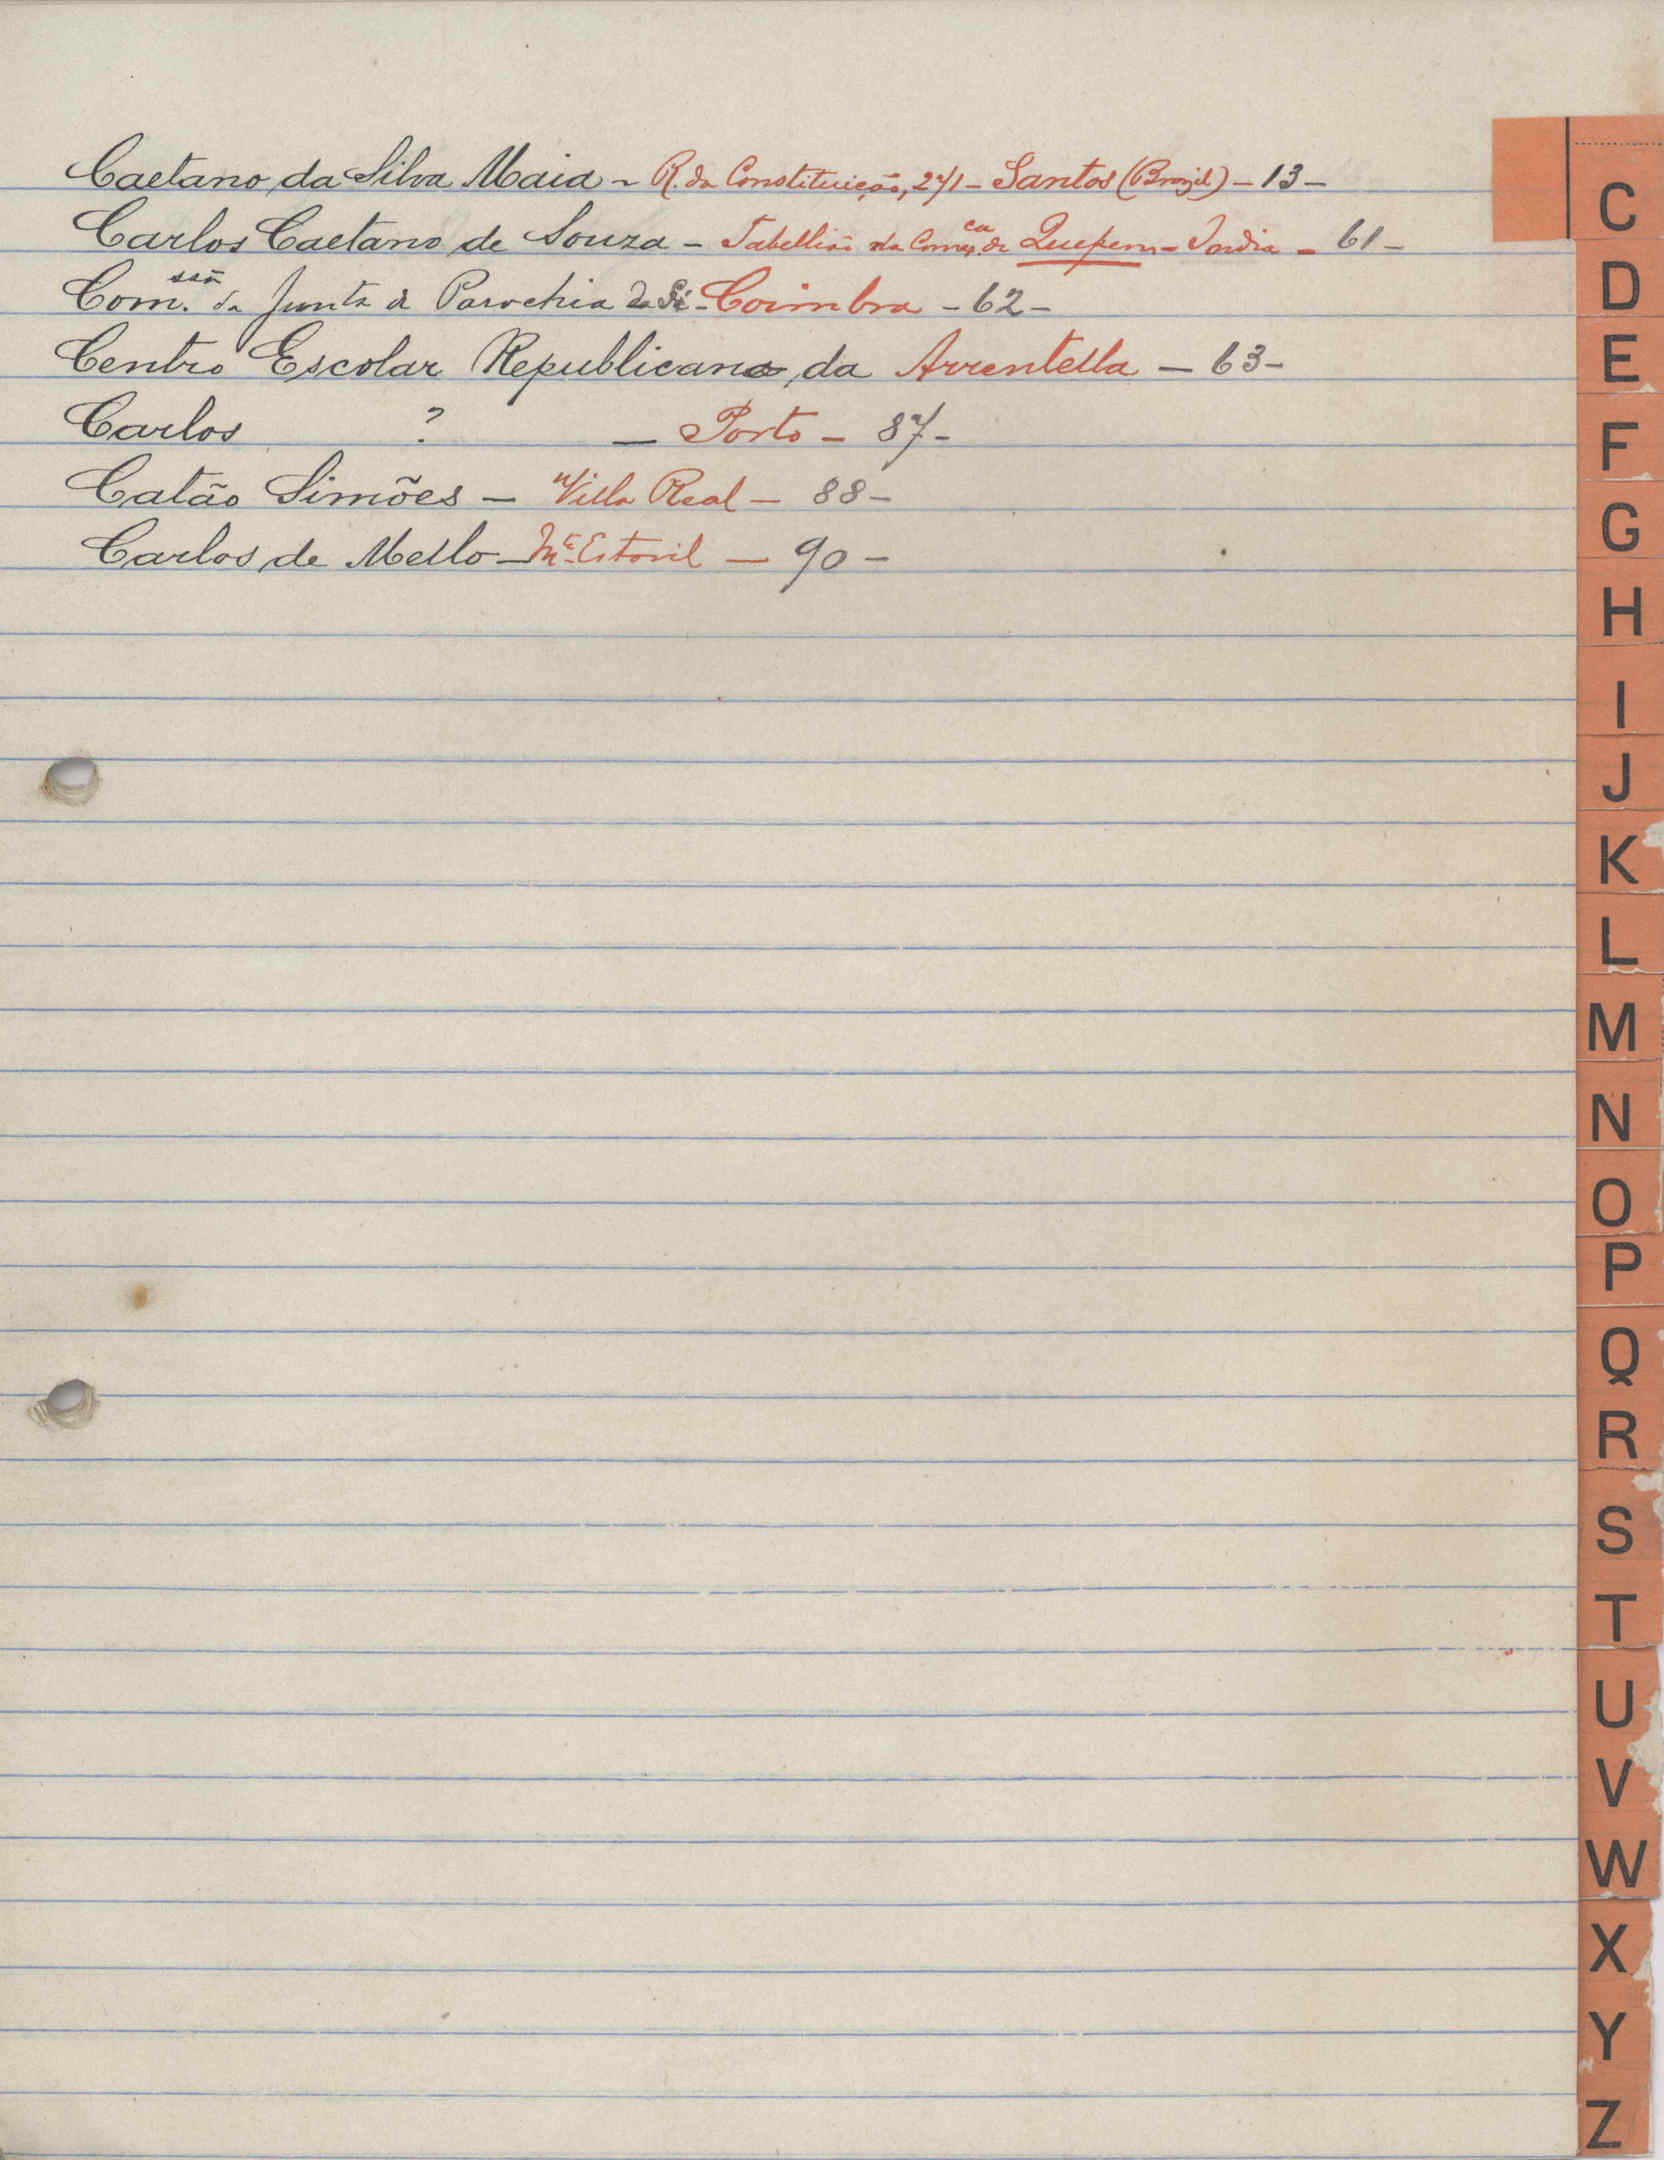 Caetano da Silva Maia - R. da Constituição, 271 - Santos (Brazil) - 13 -
Carlos Caetano de Souza - Tabellião da Comca. de Quepem - India - 61 -
Com.ssão da Junta de Parochia da Sé - Coimbra - 62 -
Centro Escolar Republicano da Arrentella - 63 -
Carlos ? - Porto - 87 -
Catão Simões - Villa Real - 88 -
Carlos de Mello - Mte. Estoril - 90 -
C
D
E
F
G
H
I
J
K
L
M
N
O
P
Q
R
S
T
U
V
W
X
Y
Z